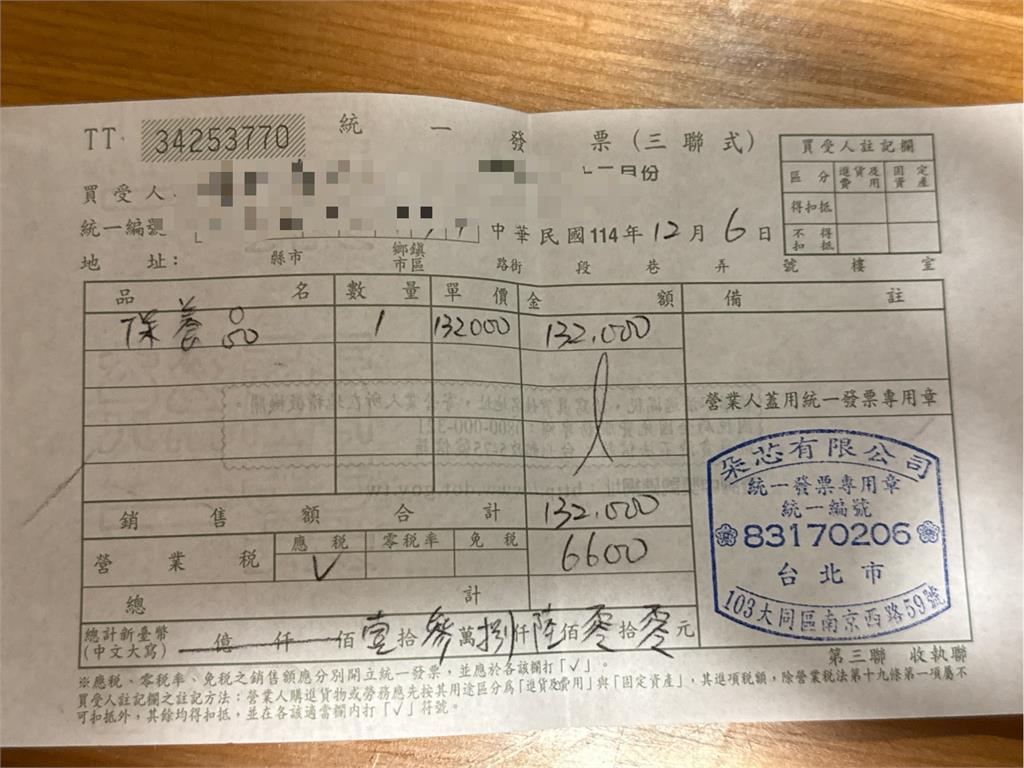 TT 34253770 統一發票(三聯式)
買受人
月份
統一編號
中華民國114年12月6日
地址: 縣市 鄉鎮市區 路街 段 巷 弄 號 樓 室
買受人註記欄
區分 進貨及費用 固定資產
得扣抵
不得扣抵
品名 數量 單價 金額 備註
保養品 1 132000 132,000
營業人蓋用統一發票專用章
銷售額合計 132,000
營業稅 應稅 零稅率 免稅 6600
V
總計
總計新臺幣(中文大寫) 億仟佰壹拾參萬捌仟陸佰零拾零元
朵芯有限公司
統一發票專用章
統一編號
83170206
台北市
103大同區南京西路59號
第三聯 收執聯
※應稅、零稅率、免稅之銷售額應分別開立統一發票,並應於各該欄打「√」。
買受人註記欄之註記方法:營業人購進貨物或勞務應先按其用途區分為「進貨及費用」與「固定資產」,其進項稅額,除營業稅法第十九條第一項屬不
可扣抵外,其餘均得扣抵,並在各該適當欄內打「√」符號。